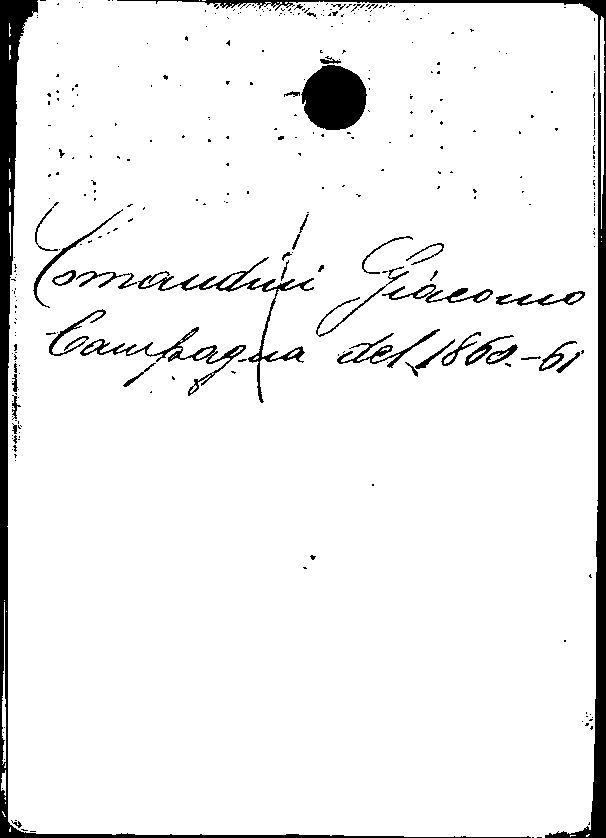 Comandini Giacomo
Campagna del 1860-61